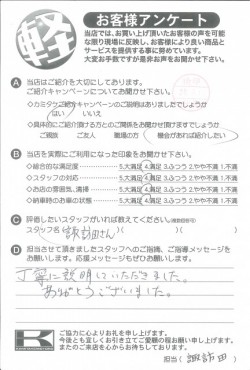 軽
お客様アンケート
当店では、お買い上げ頂いたお客様の声を可能
な限り現場に反映し、お客様により良い商品と
サービスを提供する事に努めています。
大変お手数ですが是非お声をお聞かせ下さい。
A 当店はご紹介を大切にしております。
ご紹介キャンペーンについてお聞かせ下さい。
はい いいえ
ご親族 ご友人 職場の方 機会があれば紹介したい
B 当店を実際にご利用になった印象をお聞かせ下さい。
◇総合的な満足度 5.大満足 4.満足 3.ふつう 2.やや不満 1.不満
◇スタッフの対応 5.大満足 4.満足 3.ふつう 2.やや不満 1.不満
◇お店の雰囲気、清掃 5.大満足 4.満足 3.ふつう 2.やや不満 1.不満
◇納車時のお車の状態 5.大満足 4.満足 3.ふつう 2.やや不満 1.不満
C 評価したいスタッフがいれば教えてください。
スタッフ名 諏訪田さん
D 担当させて頂きましたスタッフへのご指摘、ご指導メッセージを
お願いします。応援メッセージもぜひお願いします。
丁寧に説明していただきました。
ありがとうございました。
K
ご協力に心よりお礼を申し上げます。
今後とも宜しくお引き立てご愛顧の程お願い申し上げます。
またのご来店を心からお待ちしております。
担当( 諏訪田 )